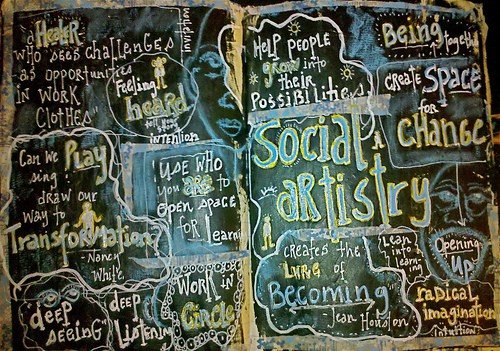 Healer
who sees challenges
as opportunities
in work
clothes"
Feeling
heard
intention
Can we Play
sing
draw our
way to
Transformation
-Nancy
White
Use who
you are to
open space
for learning
"deep
seeing"
deep
Listening
Work in
Circle
Help People
grow into
their
Possibilities
Being
together
create Space
for
Change
Social
artistry
creates the
Lure of
Becoming"
Jean Houston
Lean
into
learning
Opening
Up
radical
imagination
intuition